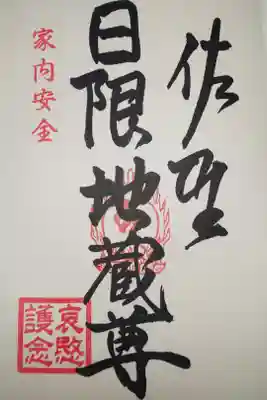 佐野
日限地蔵尊
家内安全
哀愍
護念